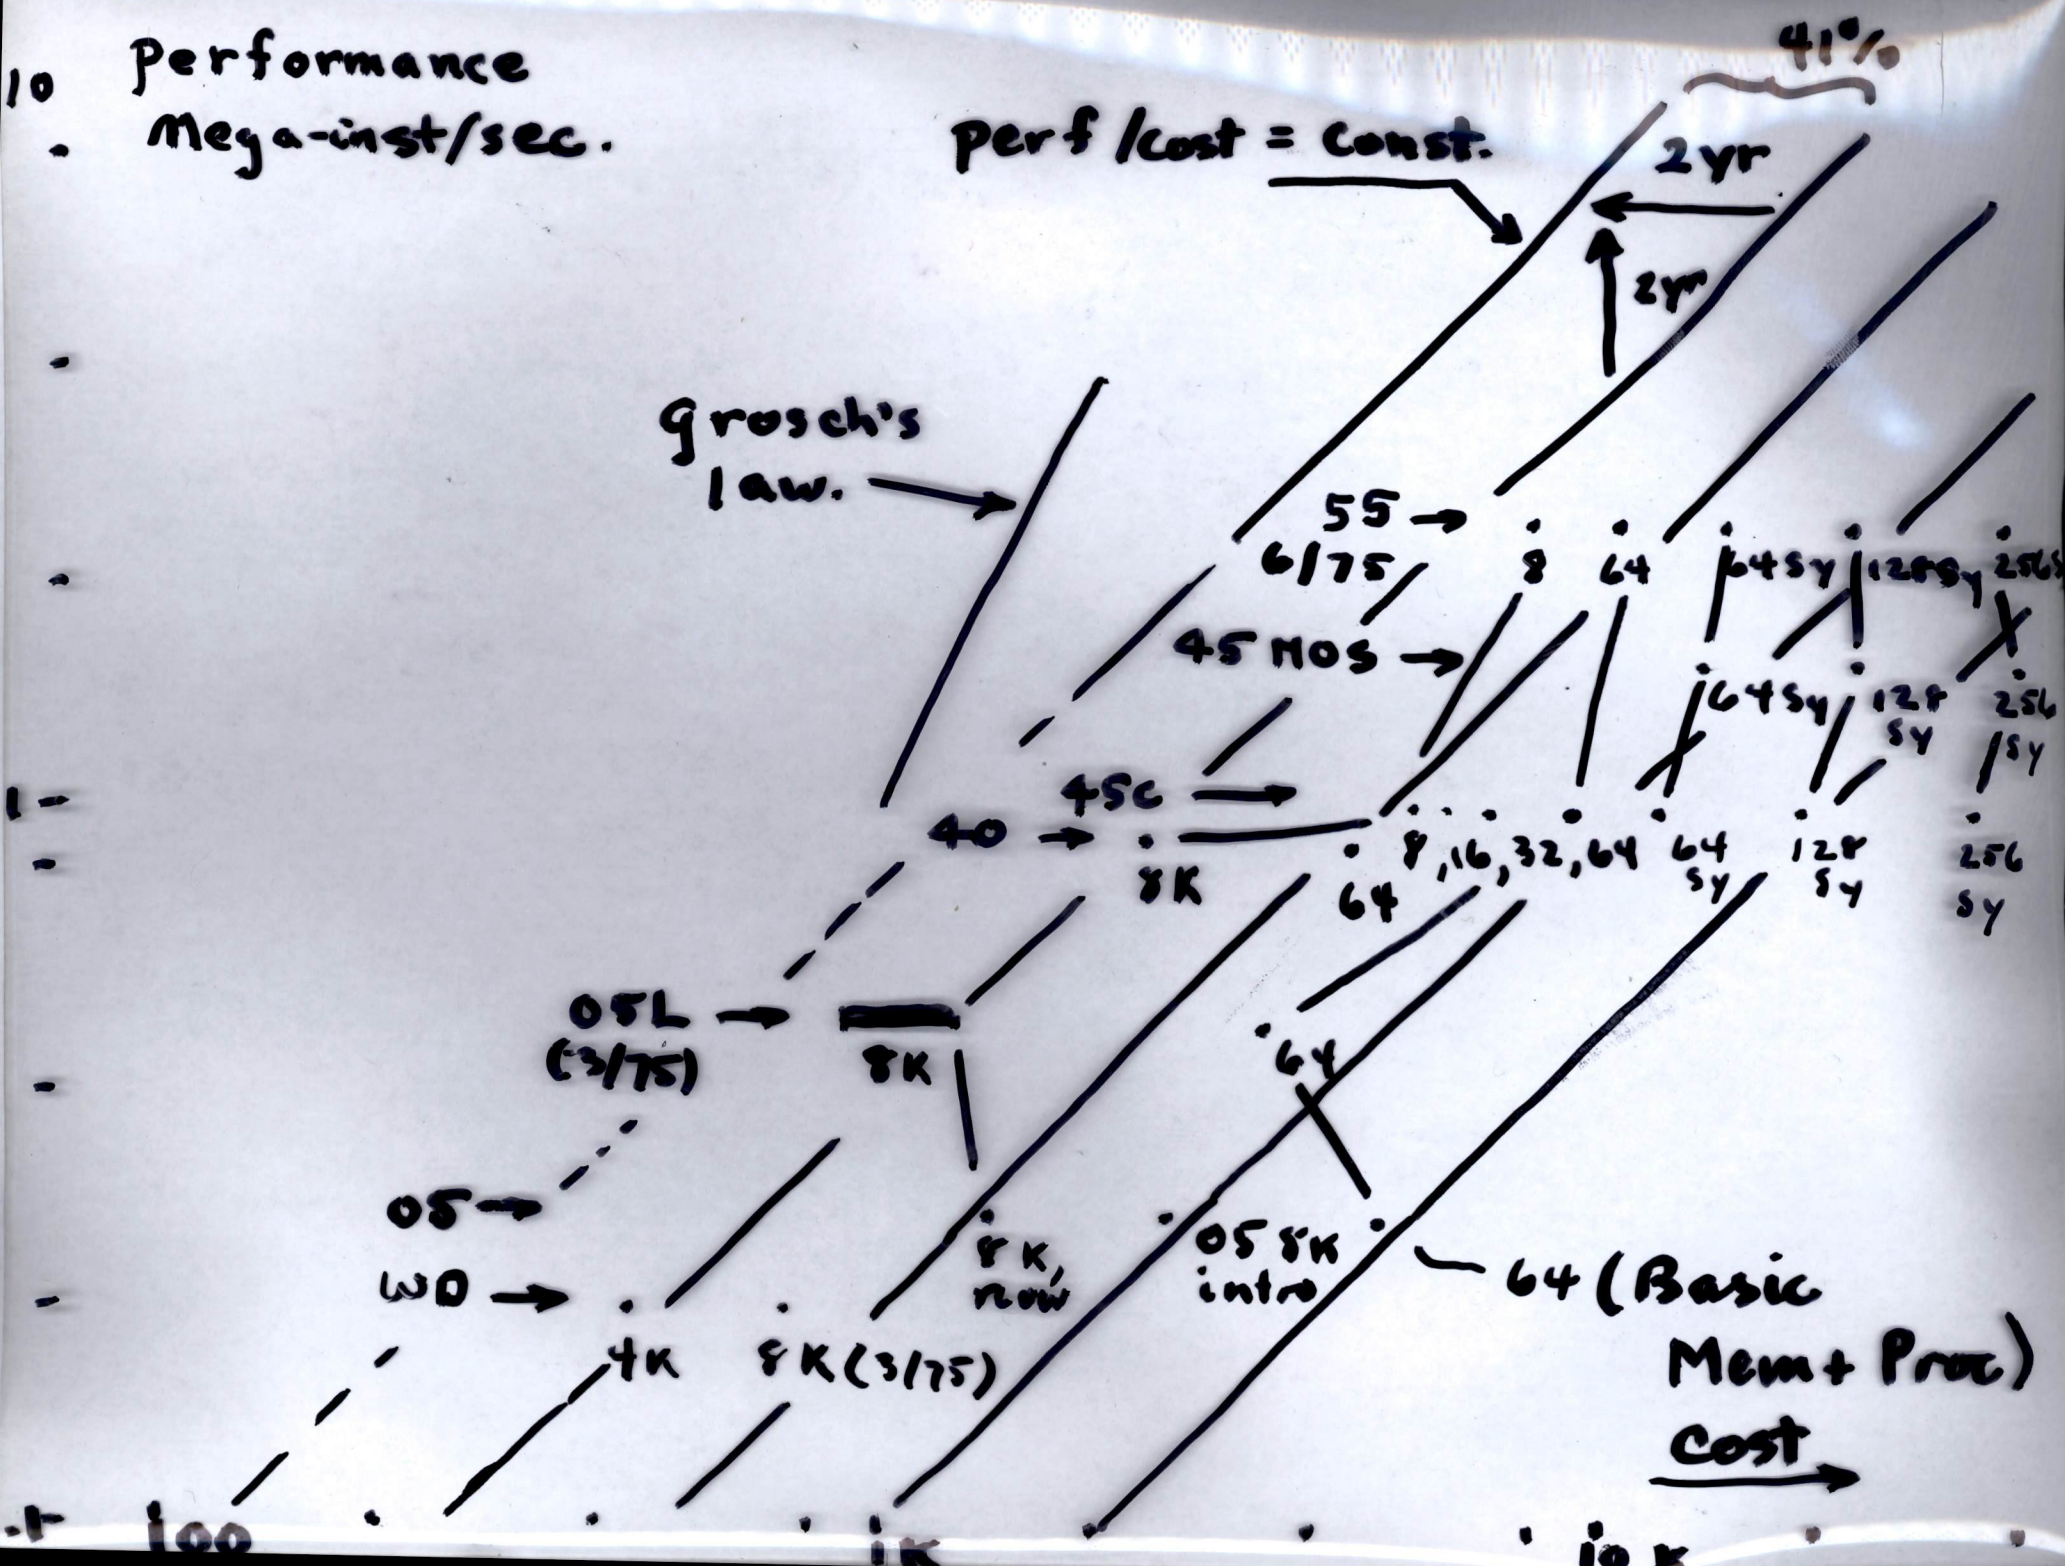 41%
10 performance
Mega-inst/sec.
perf/cost = const.
2 yr
2yr
Grosch's
law.
55 →
6/75
8 64 64 Sy 128 Sy 256 S
45 MOS →
64 Sy 128 Sy 256 Sy
1
45C →
40 →
8K
64
8, 16, 32, 64 64 Sy 128 Sy 256 Sy
05L →
(3/75)
8K
64
05 →
8K,
now
05 8K
intro
WD →
4K 8K (3/75)
64 (Basic
Mem + Proc)
Cost
.1 100 1K 10K